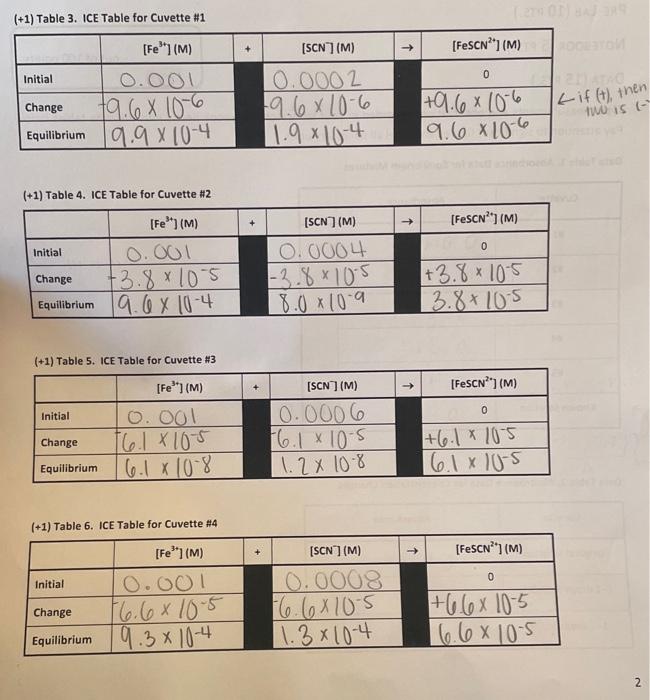 (+1) Table 3. ICE Table for Cuvette #1
[Fe³⁺] (M) + [SCN⁻] (M) → [FeSCN²⁺] (M)
Initial 0.001 0.0002 0
Change -9.6 x 10-6 -9.6 x 10-6 +9.6 x 10-6 ← if (+), then
two is (-
Equilibrium 9.9 x 10-4 1.9 x 10-4 9.6 x 10-6
(+1) Table 4. ICE Table for Cuvette #2
[Fe³⁺] (M) + [SCN⁻] (M) → [FeSCN²⁺] (M)
Initial 0.001 0.0004 0
Change -3.8 x 10-5 -3.8 x 10-5 +3.8 x 10-5
Equilibrium 9.6 x 10-4 8.0 x 10-9 3.8 x 10-5
(+1) Table 5. ICE Table for Cuvette #3
[Fe³⁺] (M) + [SCN⁻] (M) → [FeSCN²⁺] (M)
Initial 0.001 0.0006 0
Change -6.1 x 10-5 -6.1 x 10-5 +6.1 x 10-5
Equilibrium 6.1 x 10-8 1.2 x 10-8 6.1 x 10-5
(+1) Table 6. ICE Table for Cuvette #4
[Fe³⁺] (M) + [SCN⁻] (M) → [FeSCN²⁺] (M)
Initial 0.001 0.0008 0
Change -6.6 x 10-5 -6.6 x 10-5 +6.6 x 10-5
Equilibrium 9.3 x 10-4 1.3 x 10-4 6.6 x 10-5
2